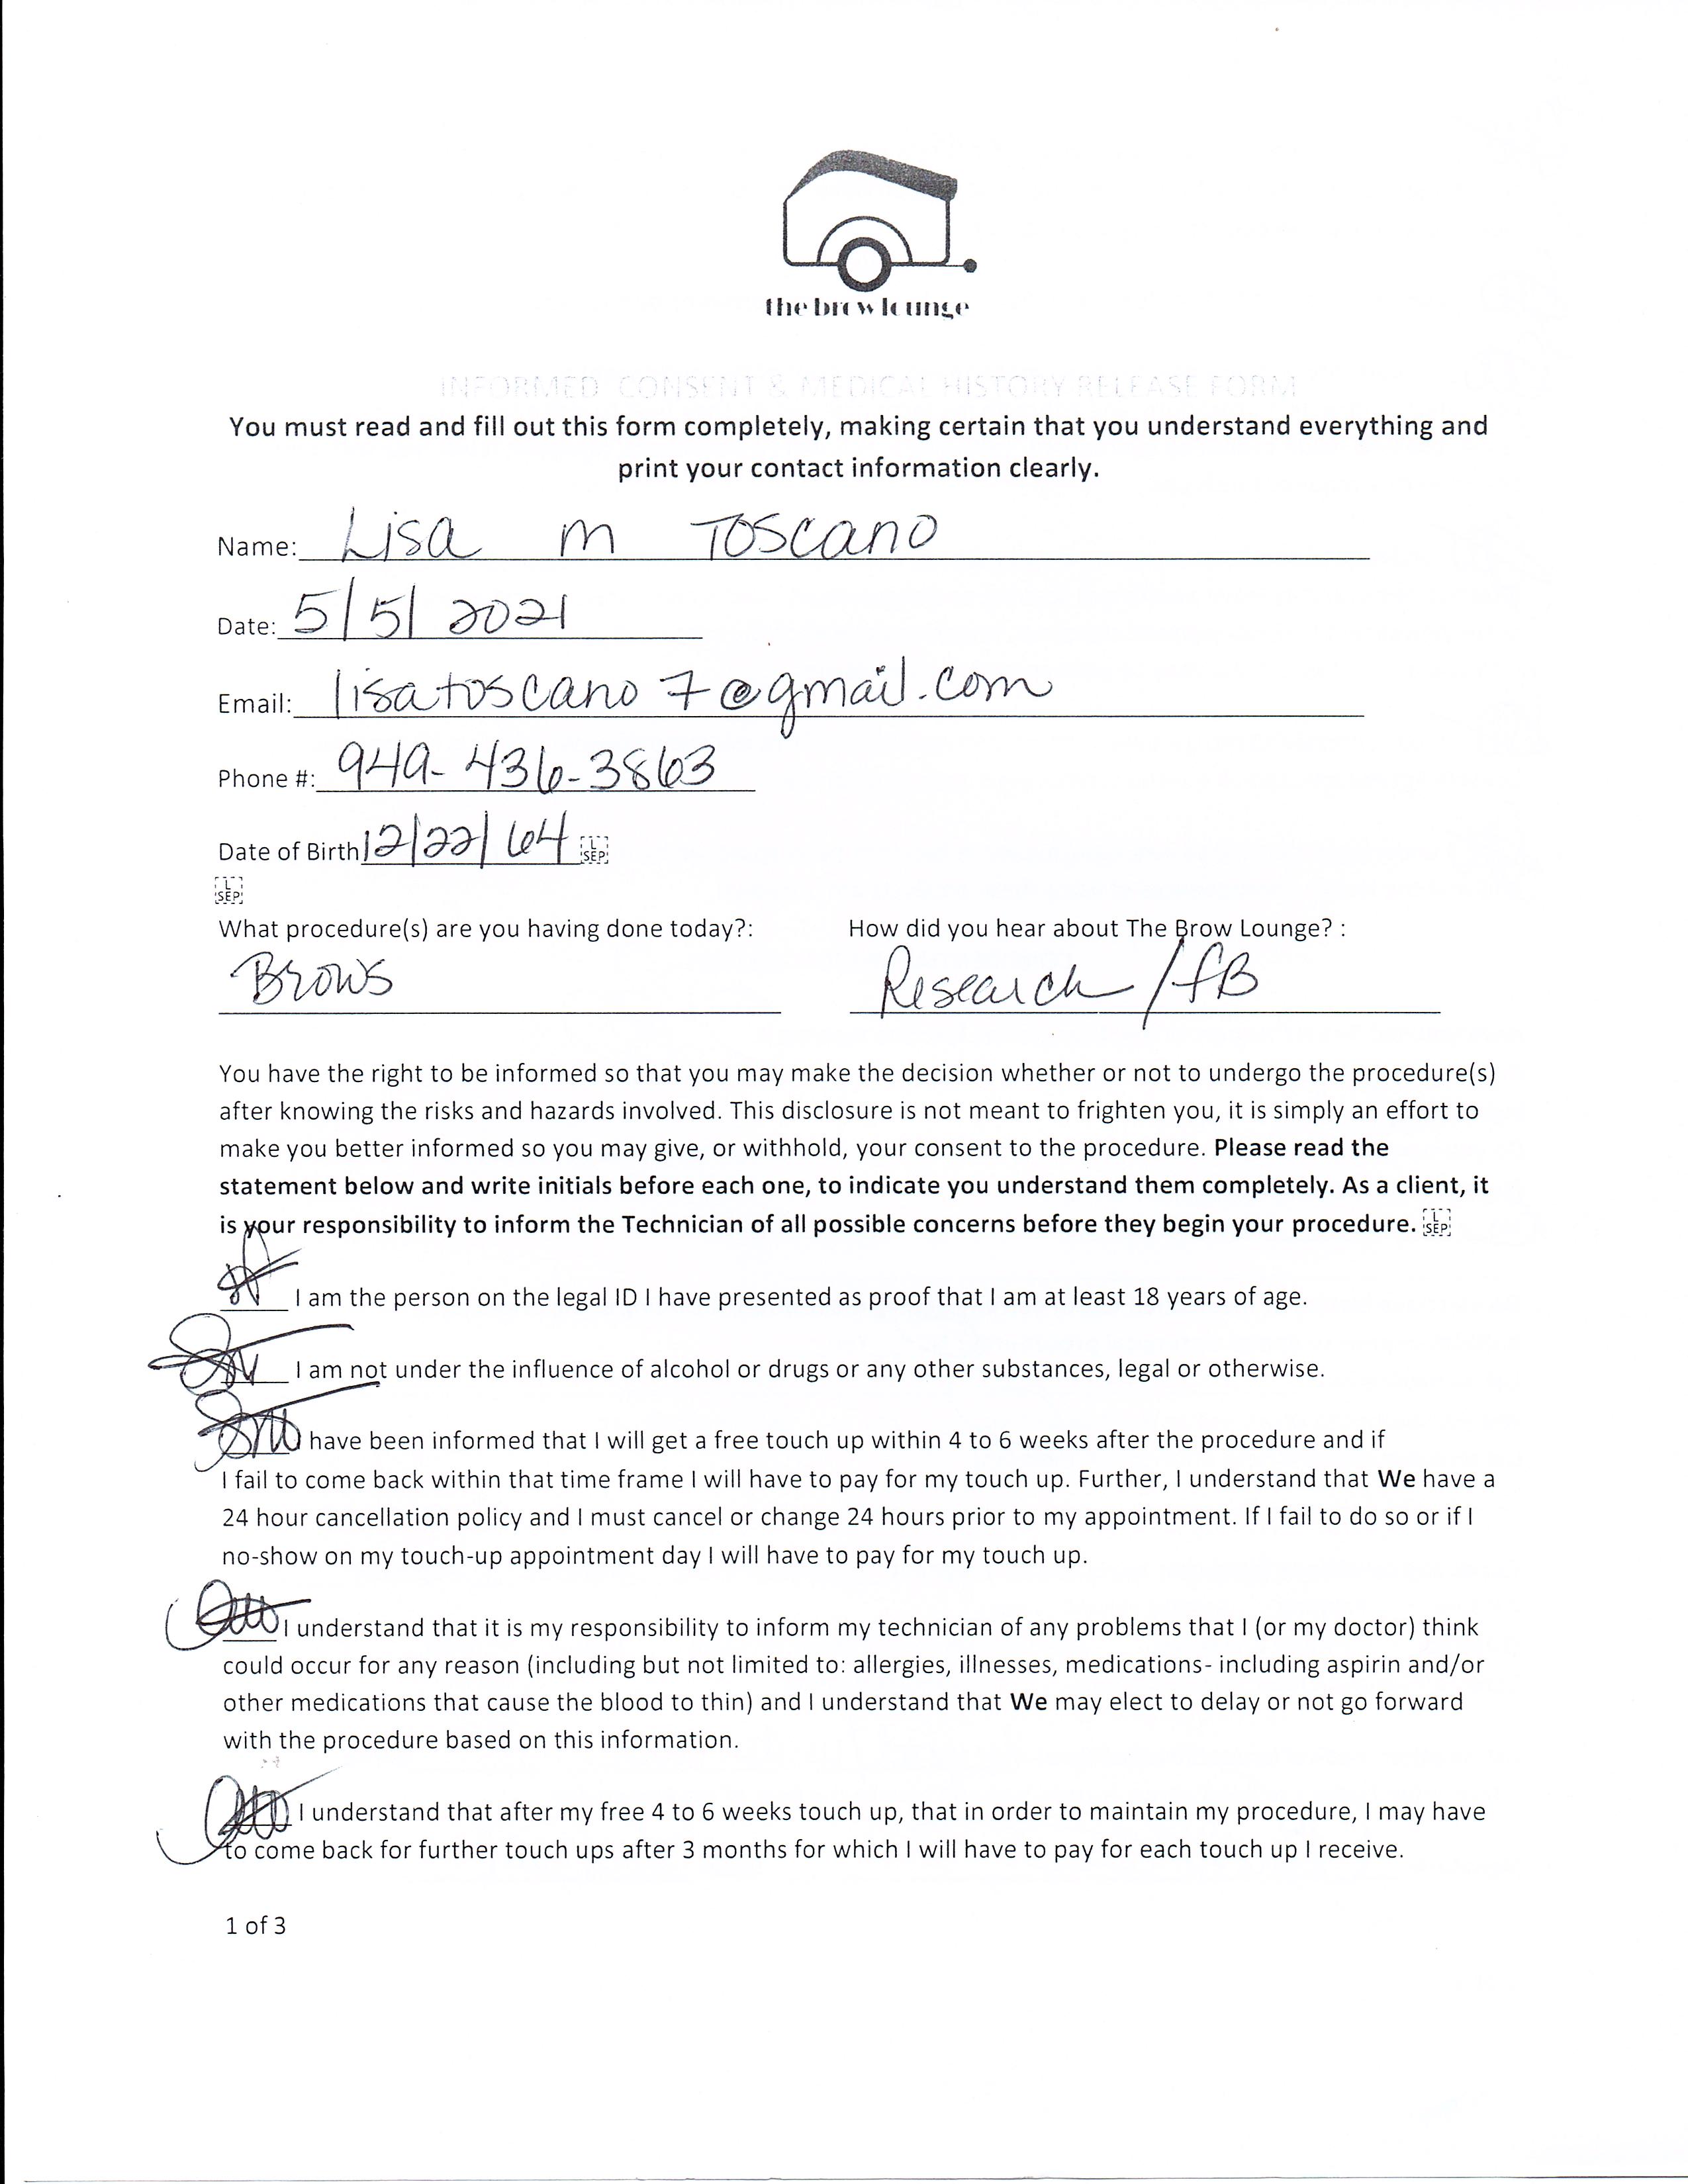 the brow lounge
INFORMED CONSENT & MEDICAL HISTORY RELEASE FORM
You must read and fill out this form completely, making certain that you understand everything and
print your contact information clearly.
Name: Lisa M Toscano
Date: 5/5/2021
Email: lisatoscano7@gmail.com
Phone #: 949-436-3863
Date of Birth 12/22/64 L SEP
L SEP
What procedure(s) are you having done today?: How did you hear about The Brow Lounge? :
Brows Research/fB
You have the right to be informed so that you may make the decision whether or not to undergo the procedure(s)
after knowing the risks and hazards involved. This disclosure is not meant to frighten you, it is simply an effort to
make you better informed so you may give, or withhold, your consent to the procedure. Please read the
statement below and write initials before each one, to indicate you understand them completely. As a client, it
is your responsibility to inform the Technician of all possible concerns before they begin your procedure. L SEP
I am the person on the legal ID I have presented as proof that I am at least 18 years of age.
I am not under the influence of alcohol or drugs or any other substances, legal or otherwise.
have been informed that I will get a free touch up within 4 to 6 weeks after the procedure and if
I fail to come back within that time frame I will have to pay for my touch up. Further, I understand that We have a
24 hour cancellation policy and I must cancel or change 24 hours prior to my appointment. If I fail to do so or if I
no-show on my touch-up appointment day I will have to pay for my touch up.
I understand that it is my responsibility to inform my technician of any problems that I (or my doctor) think
could occur for any reason (including but not limited to: allergies, illnesses, medications- including aspirin and/or
other medications that cause the blood to thin) and I understand that We may elect to delay or not go forward
with the procedure based on this information.
I understand that after my free 4 to 6 weeks touch up, that in order to maintain my procedure, I may have
to come back for further touch ups after 3 months for which I will have to pay for each touch up I receive.
1 of 3